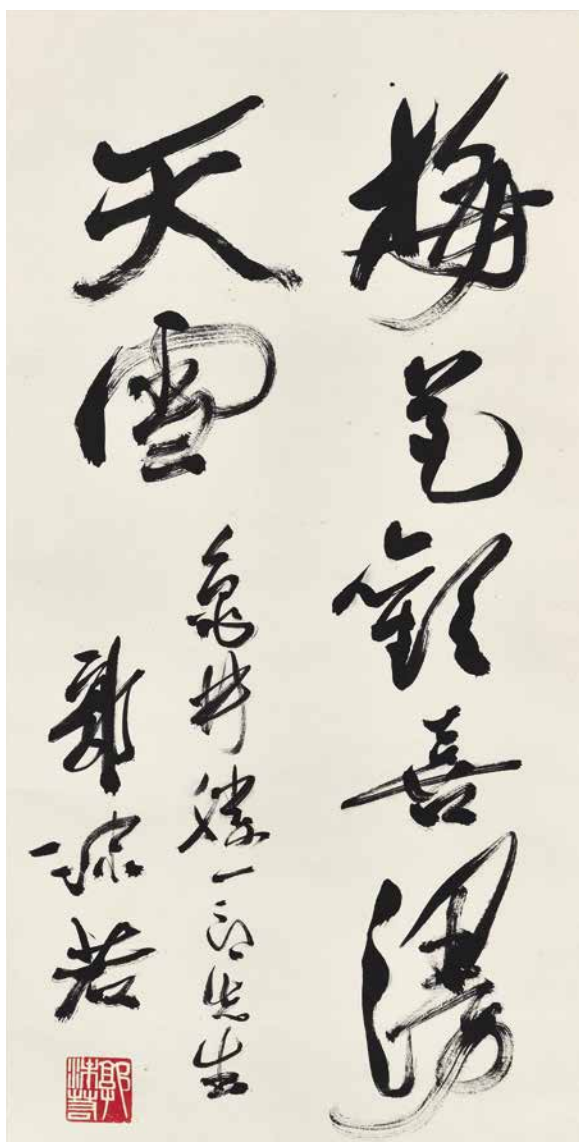 梅花歡喜漫
天雪
龜井勝一郎先生
郭沫若
郭沫若